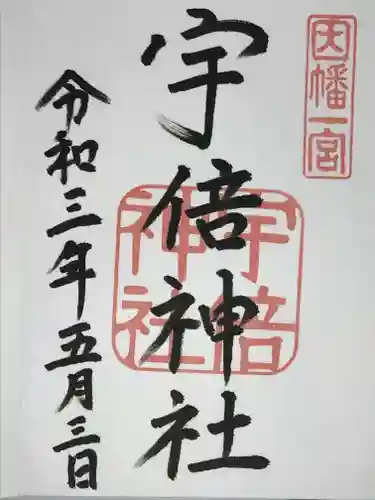 因幡一宮
宇倍神社
宇倍神社
令和三年五月三日